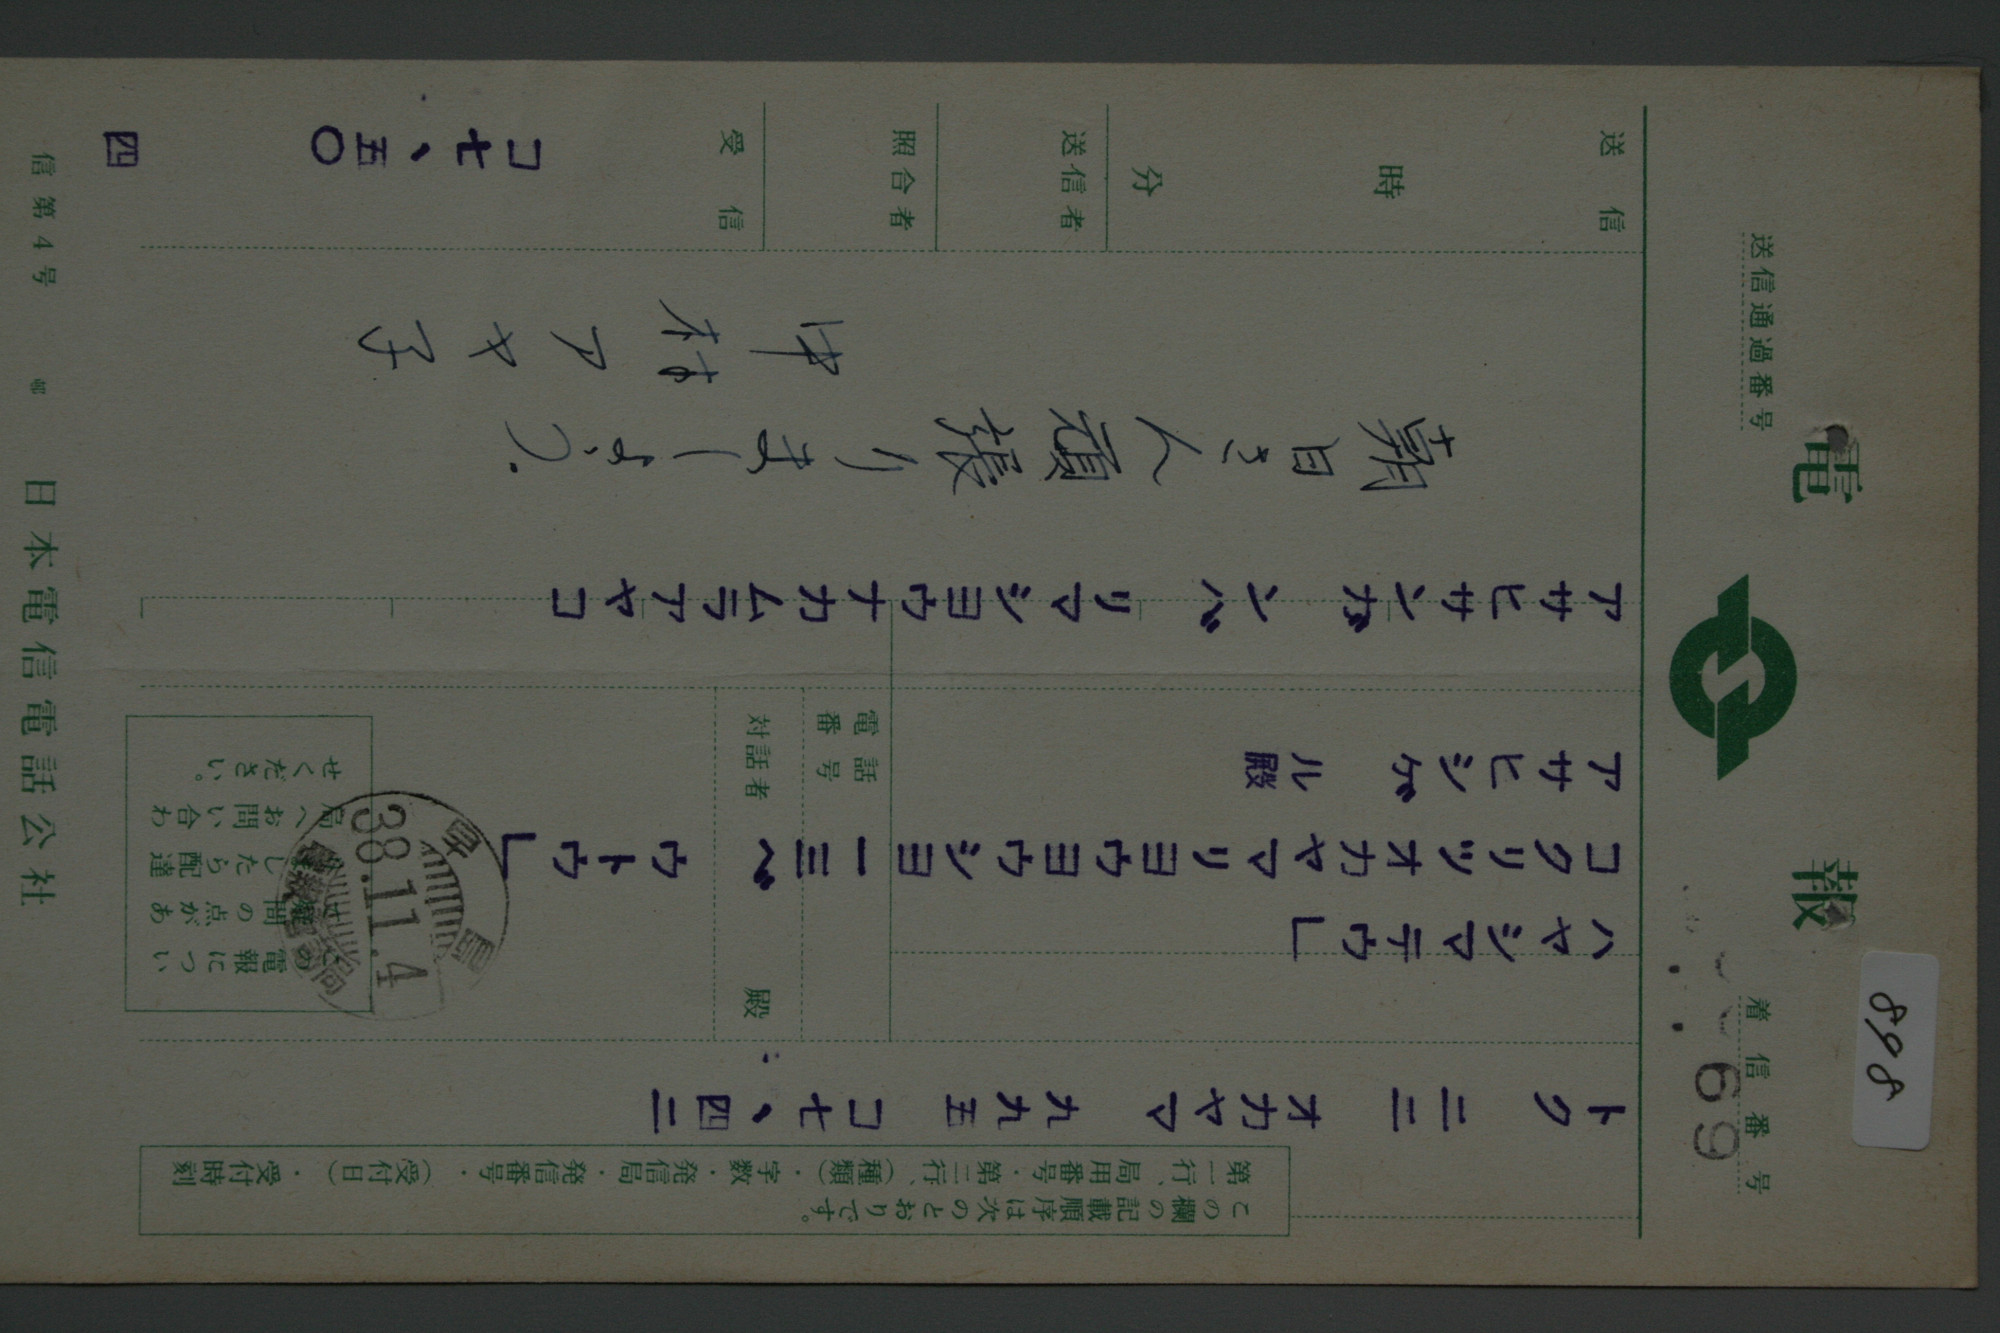 電報
送信通過番号
着信番号
69
898
この欄の記載順序は次のとおりです。
第一行、局用番号・第二行、(種類)・字数・発信局・発信番号・(受付日)・受付時刻
トク 二二 オカヤマ 九九五 コ七、四二
ハヤシマテウ」
コクリツオカヤマリヨウヨウシヨ一三ベ ウトウ」
アサヒシゲル殿
電話番号
対話者 殿
この電報について
疑問の点があ
りましたら配達
局へお問い合わ
せください。
38.11.4
アサヒサンガンバリマシヨウナカムラアヤコ
朝日さん頑張りましょう。
中村アヤ子
送信
時
分
送信者
照合者
受信
コ七、五〇
四
日本電信電話公社
信第4号